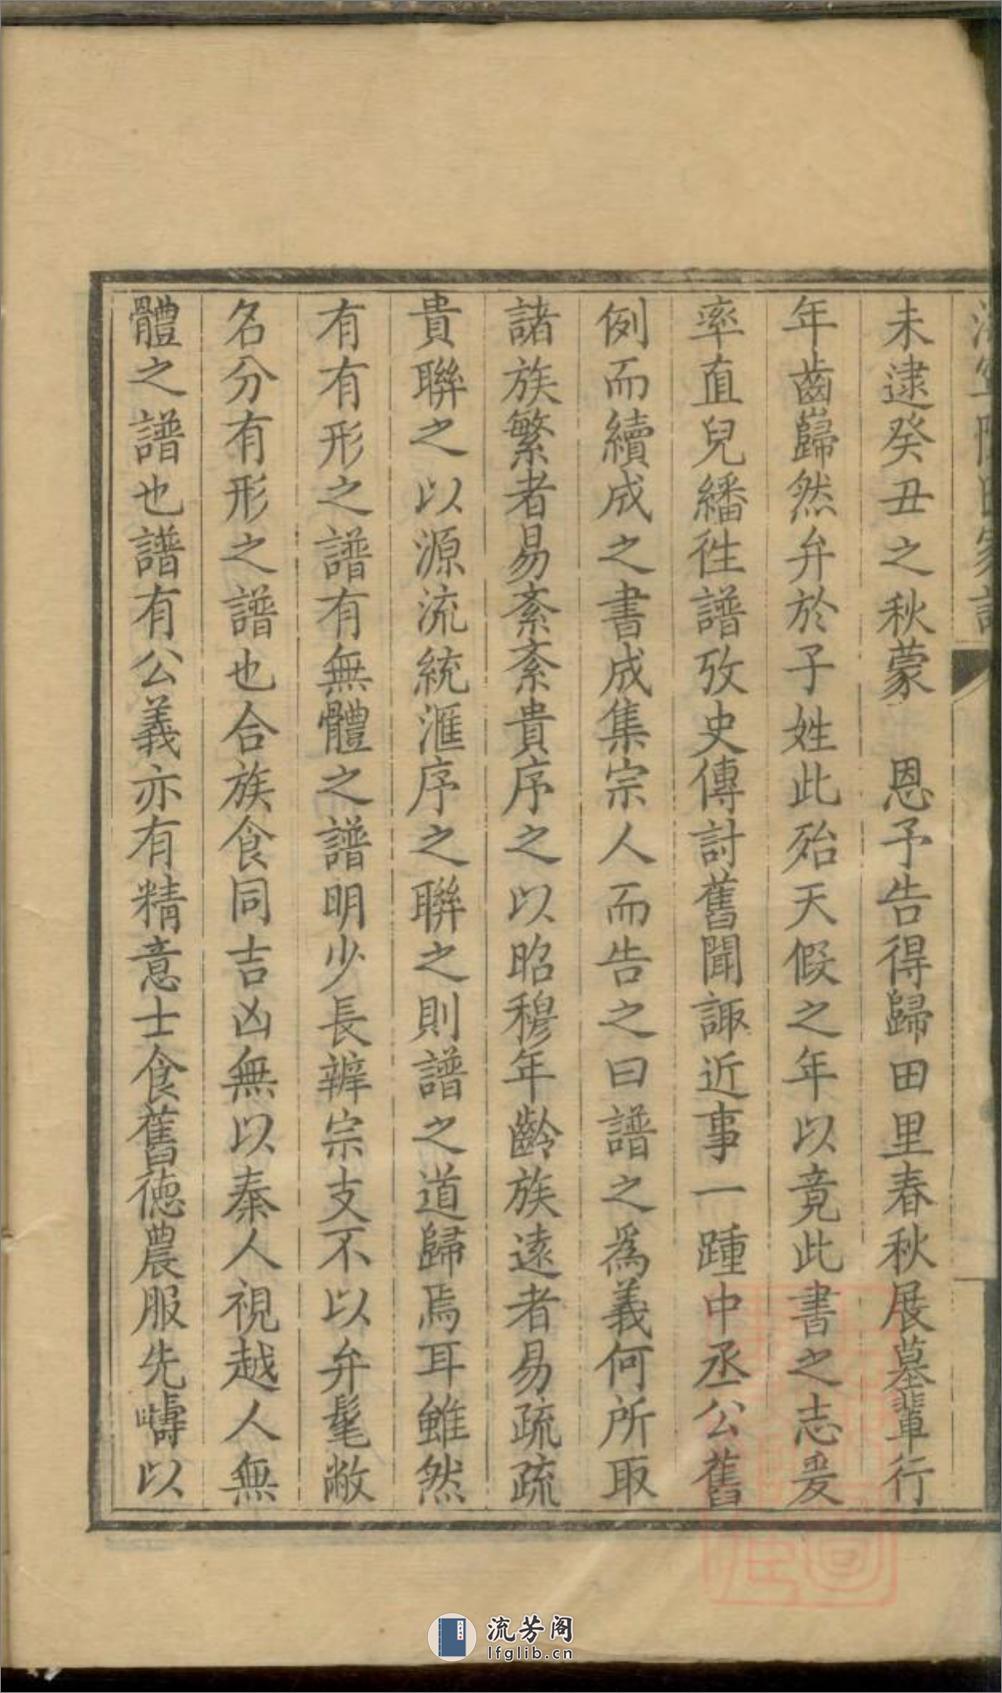 未逮癸丑之秋蒙　恩予告得歸田里春秋展墓輩行
年齒巋然弁於子姓此殆天假之年以竟此書之志爰
率直兒繙徃譜攷史傳討舊聞諏近事一踵中丞公舊
例而續成之書成集宗人而告之曰譜之爲義何所取
諸族繁者易紊紊貴序之以昭穆年齡族遠者易疏疏
貴聯之以源流統滙序之聯之則譜之道歸焉耳雖然
有有形之譜有無體之譜明少長辨宗支不以弁髦敝
名分有形之譜也合族食同吉凶無以秦人視越人無
體之譜也譜有公義亦有精意士食舊德農服先疇以
流芳阁
lfglib.cn